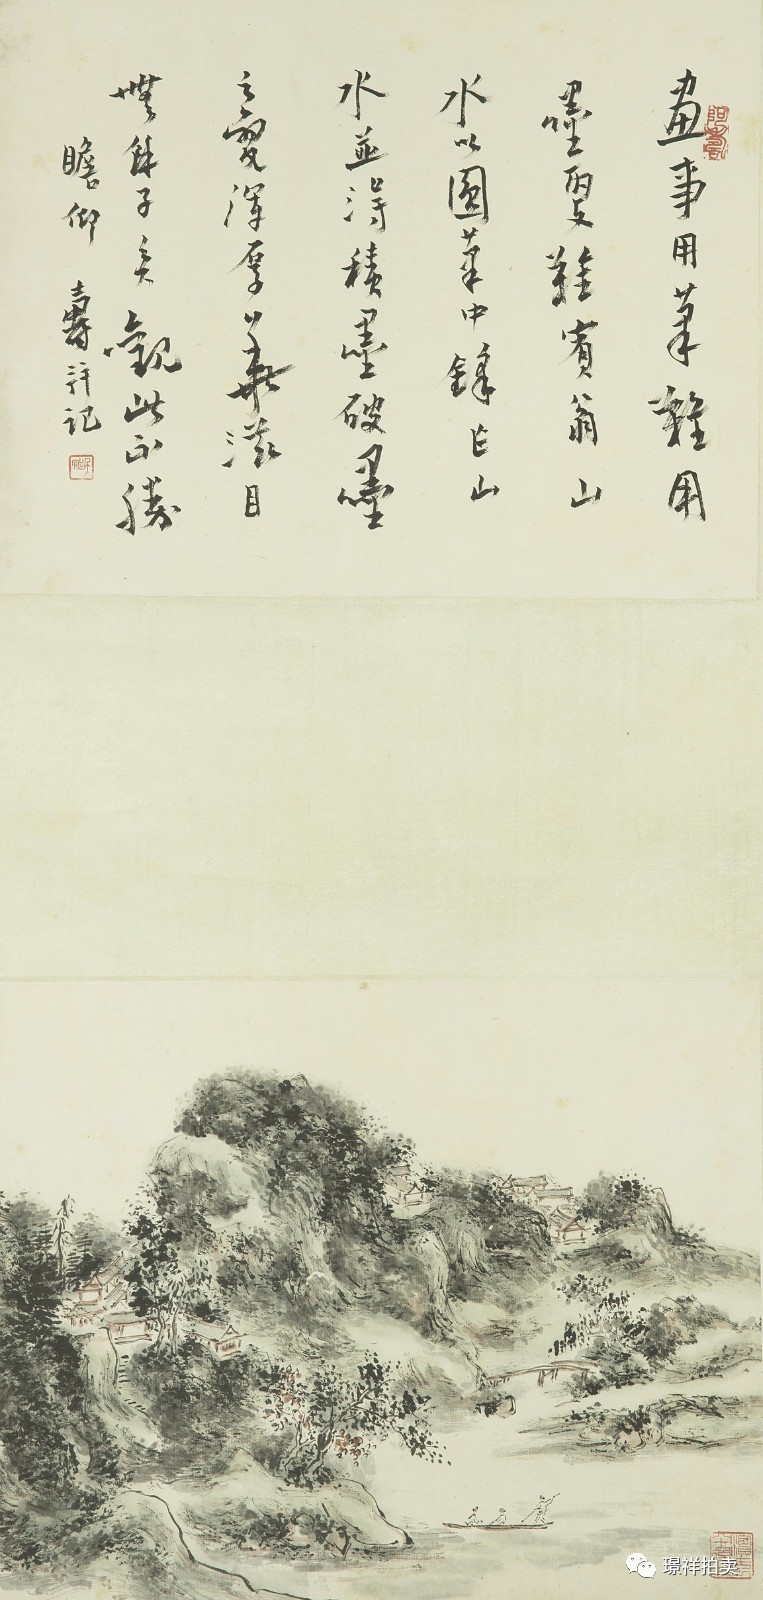 畫事用筆難用
墨更難賓翁山
水以圓筆中鋒山
水並得積墨破墨
之變渾厚華滋目
無餘子矣觀此不勝
瞻仰 壽記
璟祥拍卖